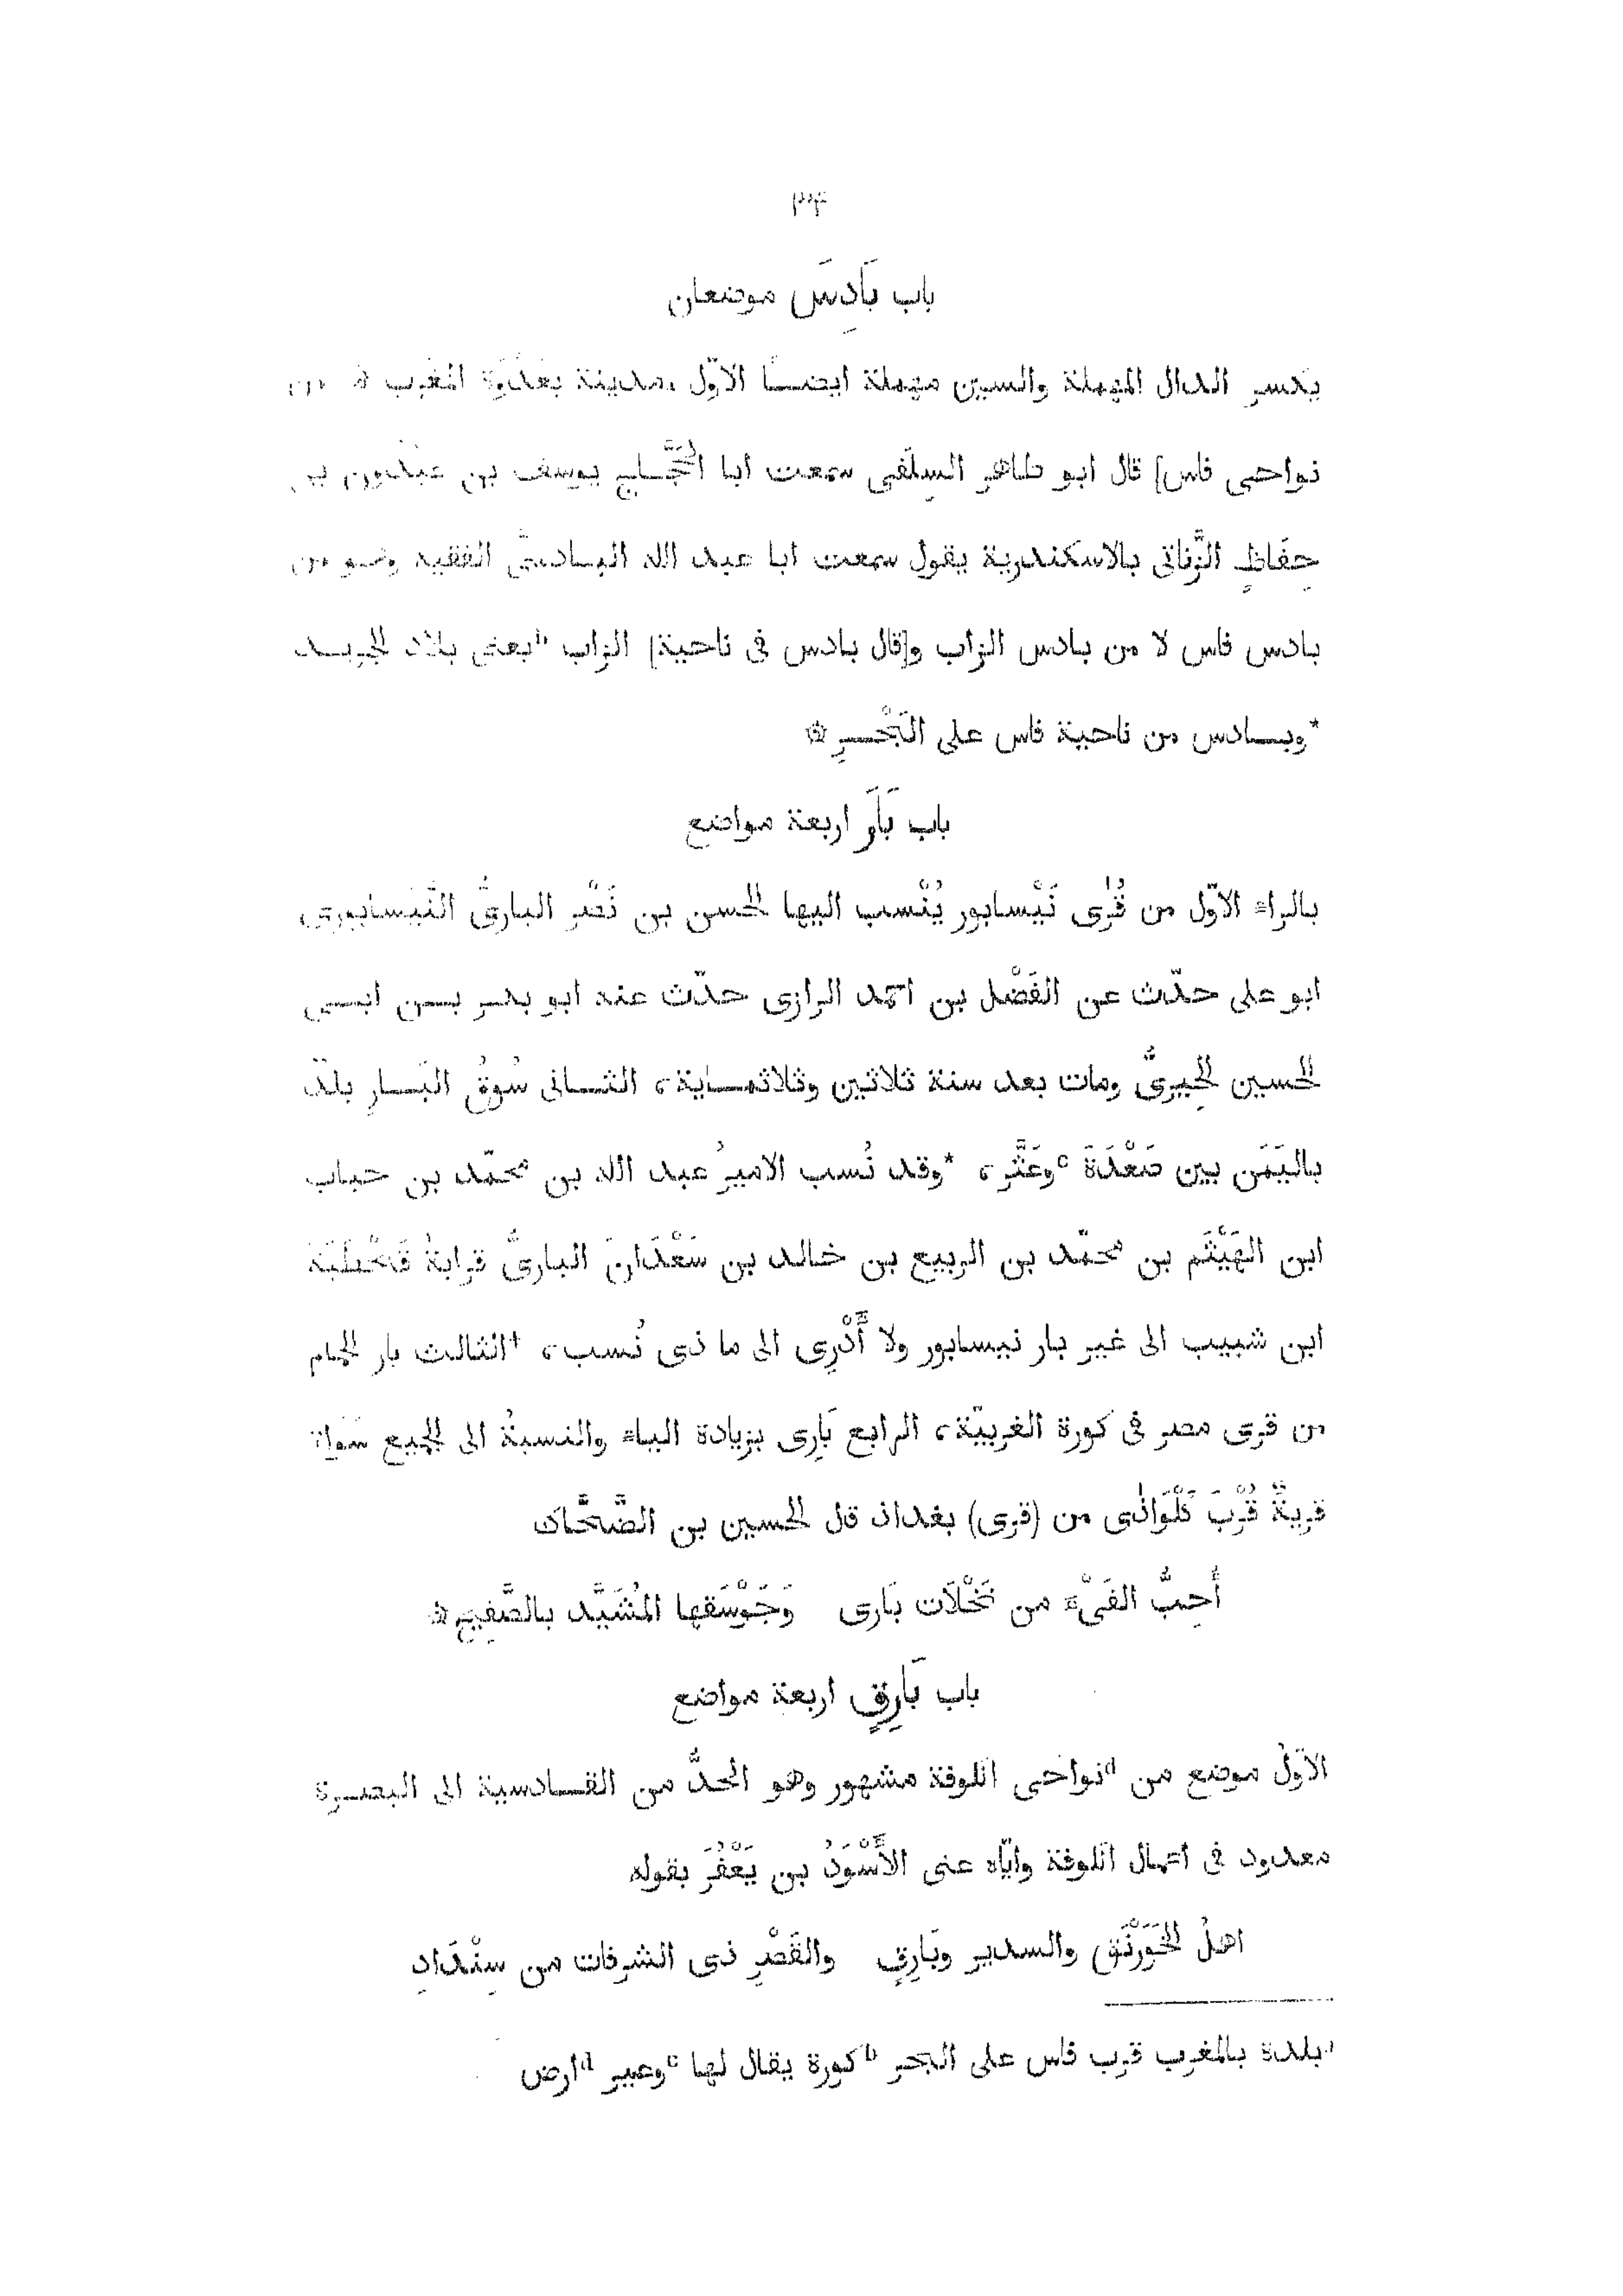 ٣٤
باب بَادِسَ موضعان
بكسر الدال المهملة والسين مهملة ايضــا الاوّل مدينة بعَدْوَة المغرب من
نواحى فاس] قال ابو طاهر السِلَفى سمعت ابا الحَجَّــاج يوسف بن عبدون بن
حِفَاظٍ الزَّناتى بالاسكندرية يقول سمعت ابا عبد الله البادسىَّ الفقيه وهـو من
بادس فاس لا من بادس الزاب و[قال بادس فى ناحية] الزاب bبعض بلاد الجريـد
*وبــادس من ناحية فاس على البَحْــرِ ۞
باب بَارَ اربعة مواضع
بالراء الاوّل من قُرَى نَيْسابور يُنْسب اليها الحسن بن نَصْر البارىُّ النَّيسابورى
ابو على حدّث عن الفَضْل بن احمد الرازى حدّث عنه ابو بكـر بـن ابـى
الحسين الحِيرىُّ ومات بعد سنة ثلاثين وثلاثمــاية، الثــانى سُوقُ البَــارِ بلدٌ
باليَمَن بين صَعْدَةَ cوعَثَّر، *وقد نُسب الاميرُ عبد الله بن محمّد بن حباب
ابن الهَيْثَم بن محمّد بن الربيع بن خالد بن سَعْدَانَ البارىُّ قرابةُ قَحْطَبَةَ
ابن شبيب الى غير بار نيسابور ولا أَدْرِى الى ما ذى نُسب، †الثالث بار الحمام
من قرى مصر فى كورة الغربيّة، الرابع بَارِى بزيادة الياء والنسبةُ الى الجميع سَوَاءٌ
قريةٌ قُرْبَ كَلْوَاذَى من (قرى) بغداذ قال الحسين بن الضَّحَّاك
أُحِبُّ الفَىْءَ من نَخْلَات بَارى وَجَوْسَقها المُشَيَّد بالصَّفِيحِ ۞
باب بَارِقٍ اربعة مواضع
الاوّلُ موضع من dنواحى الكوفة مشهور وهو الحدُّ من القــادسية الى البصـرة
معدود فى اعمال الكوفة وايّاه عنى الأَسْوَدُ بن يَعْفُرَ بقوله
اهلُ الخَوَرْنَق والسدير وبَارِقٍ والقَصْرِ ذى الشرفات من سِنْدَادِ
بلدة بالمغرب قرب فاس على البحر bكورة يقال لها cوعبير dارض